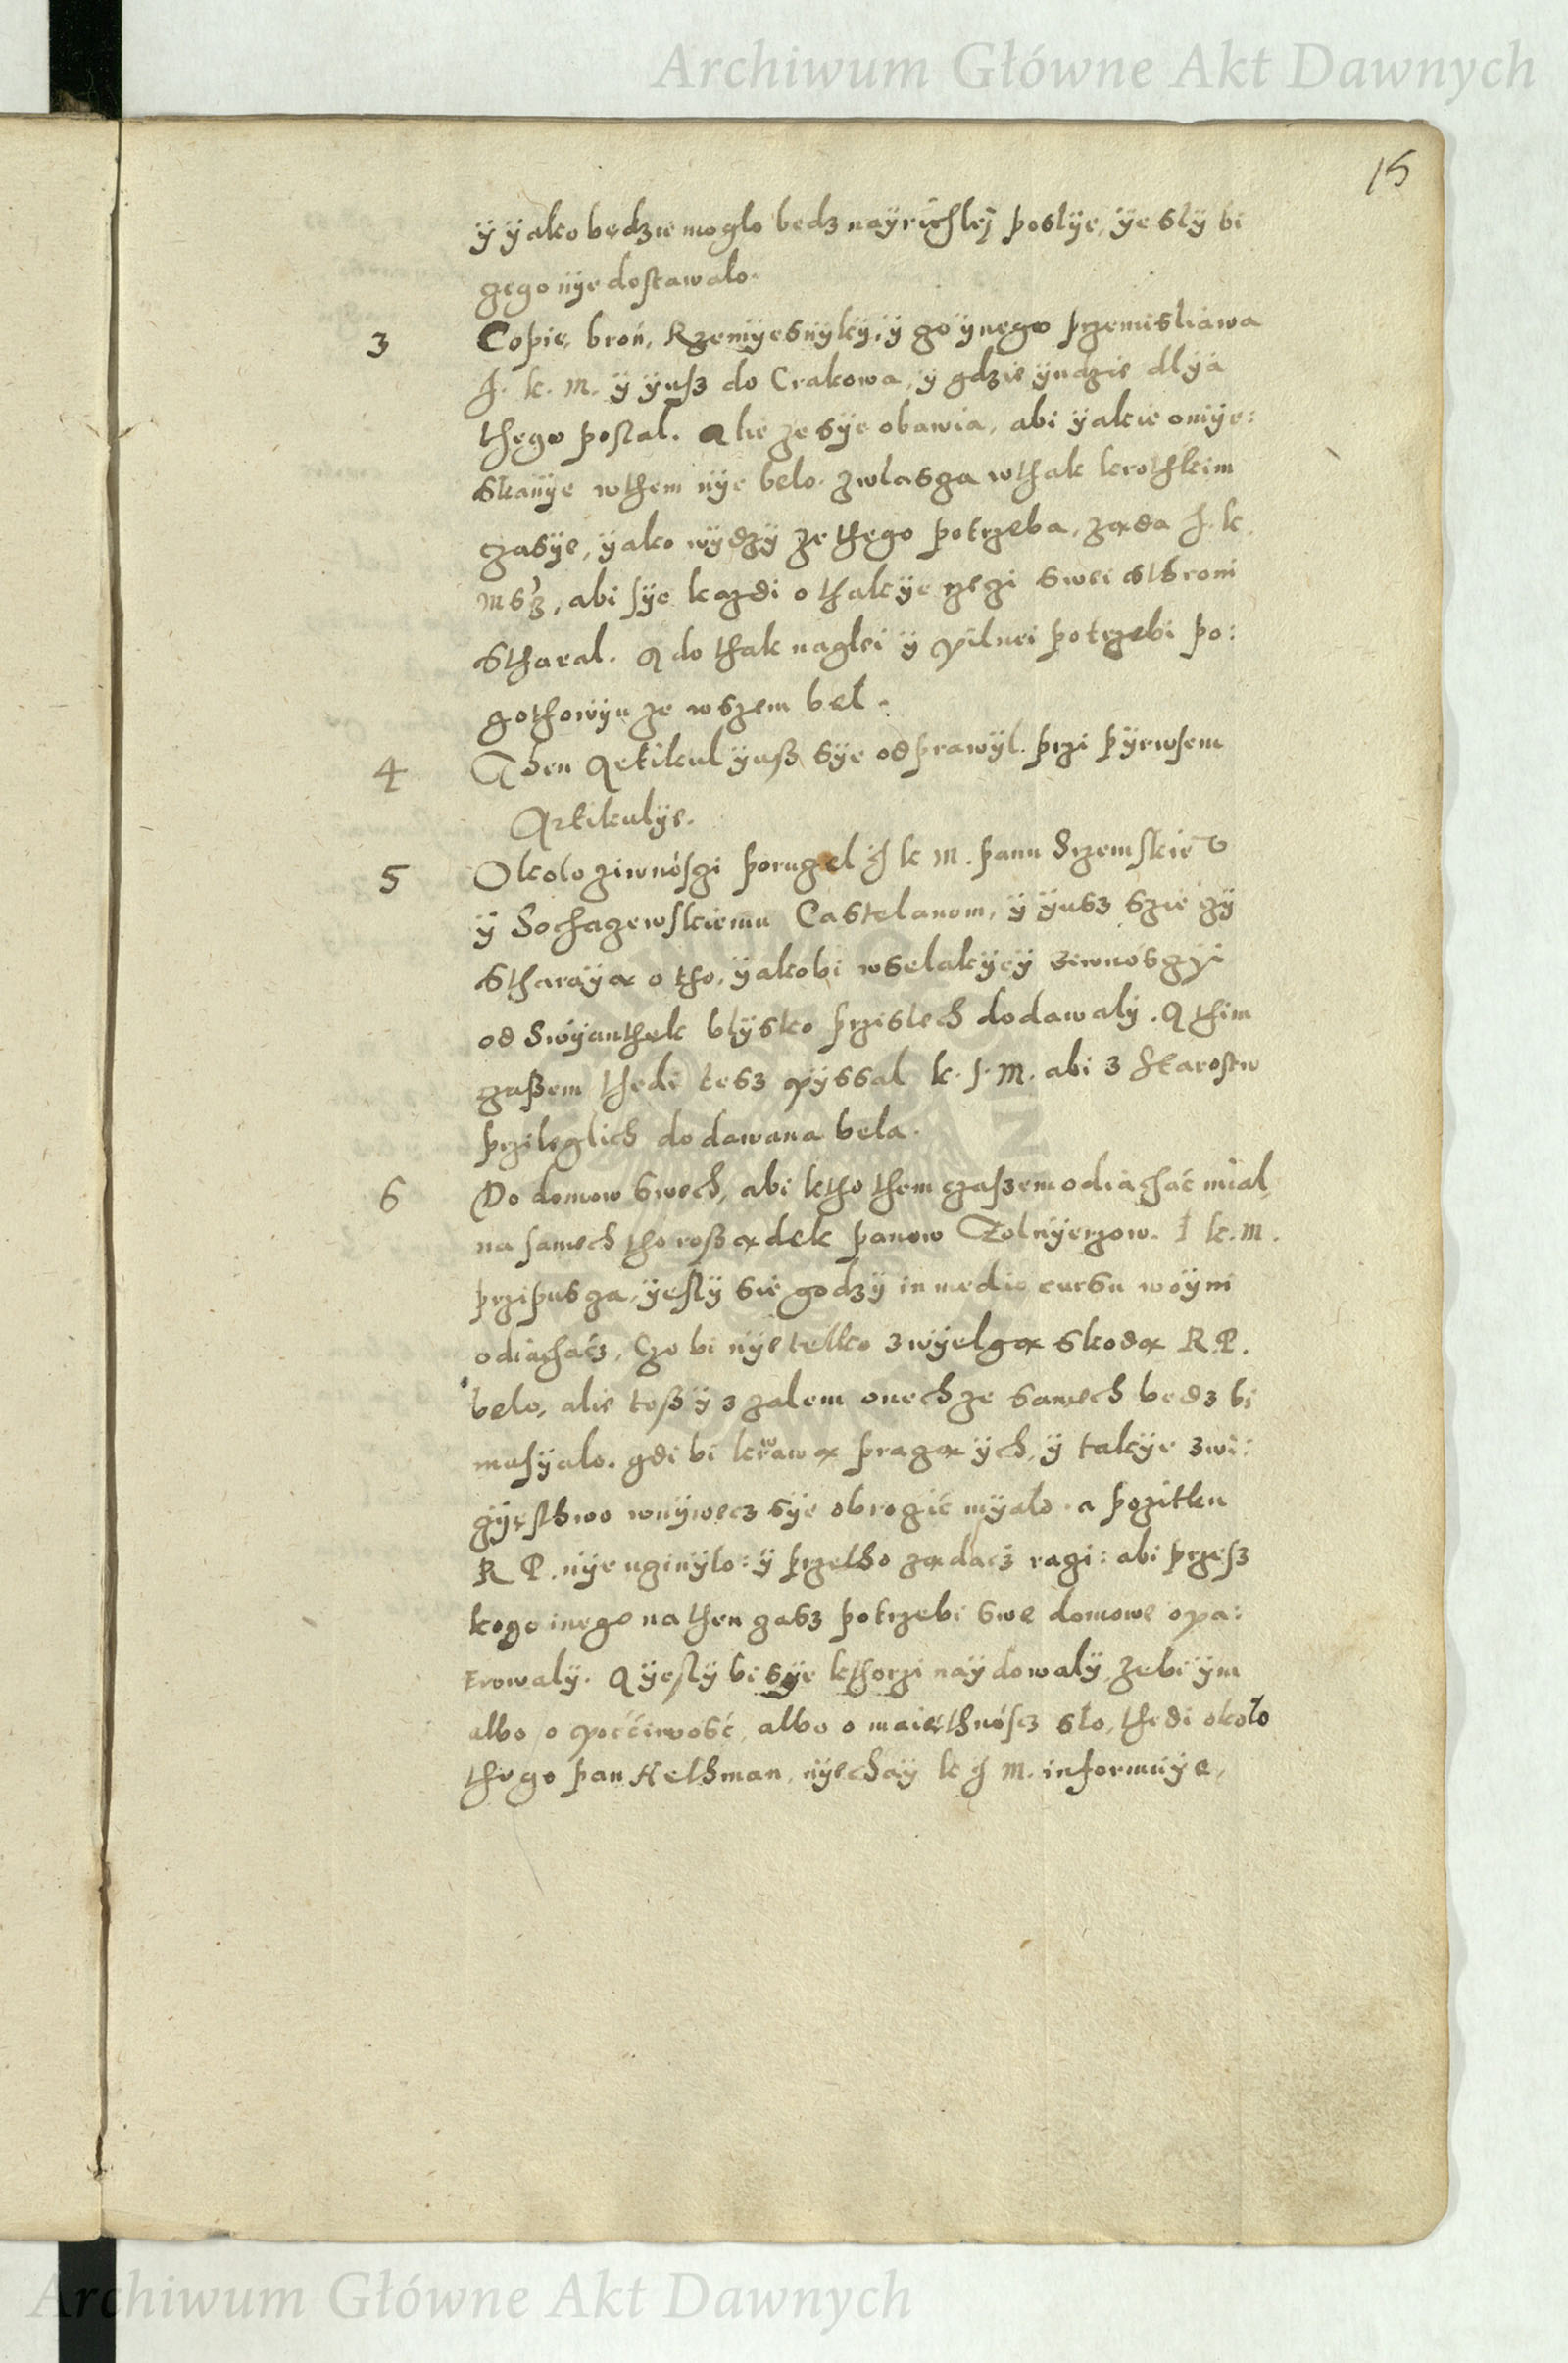 Archiwum Główne Akt Dawnych
15
ÿ ÿako będzie moglo bedz naÿrichleÿ poslÿe, ÿesłÿ bi
gego nÿe dostawalo.
3 Copie, broń, Rzemÿesnÿkÿ, ÿ goÿnego przemisliawa
J. k. M. ÿ ÿusz do Crakowa, ÿ gdzie ÿndzie dlÿa
thego postal. Alie ze sÿe obawia, abi ÿakie omÿe:
skanÿe wthem nÿe belo. zwlasga wthak krothkim
czasÿe, ÿako wÿdzÿ ze thego potrzeba, ząda J. k.
Mścz, abi sÿe kazdi o thakÿe rzegi swei sthroni
stharal. A do thak naglei ÿ pilnei potrzebi po:
gothowÿu ze wszem bel.
4 Then Artikul ÿusz sÿe odprawÿl. przi pÿrwsem
Artikulÿe.
5 Okolo ziwnosgi porugel J k M. panu Srzemskiemu
ÿ Sochagewskiemu Castelanom, ÿ ÿusz szie gÿ
stharaÿą o tho, ÿakobi wselakÿeÿ ziwnosgÿi
od Swÿanthek blÿsko przislech dodawalÿ. A thim
gaszem thedi tesz pÿssal k. J. M. abi z Starostw
przileglich dodawana bela.
6 Do domow swech, abi ktho them czaszem odiachać mial,
na samech tho rosządek panow Zolnÿerzow. J k. M.
przipusga, ÿeslÿ sie godzÿ in medio cursu woÿni
odiachacz, czo bi nÿe telko z wÿelgą skodą R. P.
belo, alie tesz ÿ z zalem onechze samech bedz bi
musÿalo. gdi bi krwawą pragą ÿch, ÿ takÿe zwi:
gÿęsthwo wnÿwecz sÿe obrogić mÿalo. a pozitku
R P. nÿe uginÿlo: ÿ przetho ządacz ragi: abi przesz
kogo inego na then gasz potrzebi swe domowe opa:
trowalÿ. A ÿeslÿ bi sÿe kthorzi naÿdowalÿ, zebi ÿm
albo o poććiwość, albo o maięthnoscz sło, thedi około
thego pan Hethman, nÿechaÿ k J M. informuÿe,
Archiwum Główne Akt Dawnych